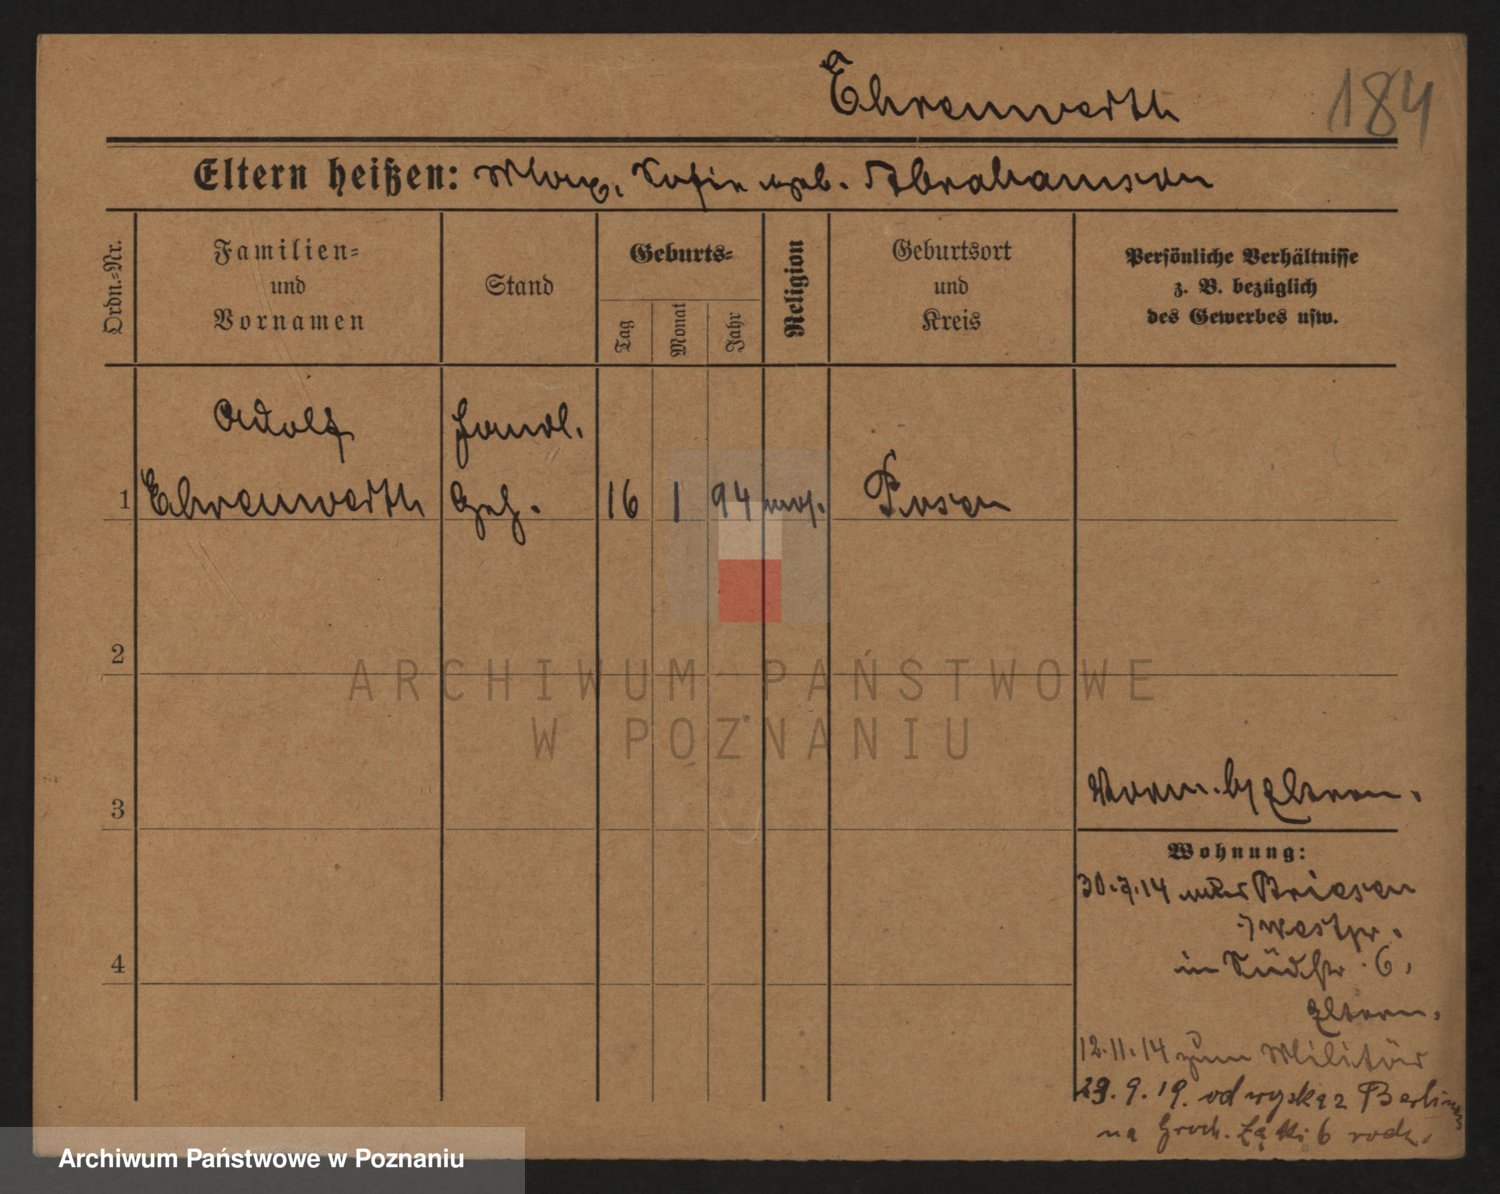 Ehrenwerth
184
Eltern heißen: Max, Sofie geb. Abrahamson
Ordn.-Nr.
Familien-
und
Vornamen
Stand
Geburts-
Tag
Monat
Jahr
Religion
Geburtsort
und
Kreis
Persönliche Verhältnisse
z. B. bezüglich
des Gewerbes usw.
Adolf
Handl.
1 Ehrenwerth Geh. 16 1 94 mos. Posen
2
3
4
Vorm. b/ Eltern.
Wohnung:
30.7.14 aus Briesen
Westpr.
in Südstr. 6,
Eltern.
12.11.14 zum Militär
29.9.19. od wojska z Berlina
na Groch. Łąki 6 rodz.
ARCHIWUM PAŃSTWOWE
W POZNANIU
Archiwum Państwowe w Poznaniu